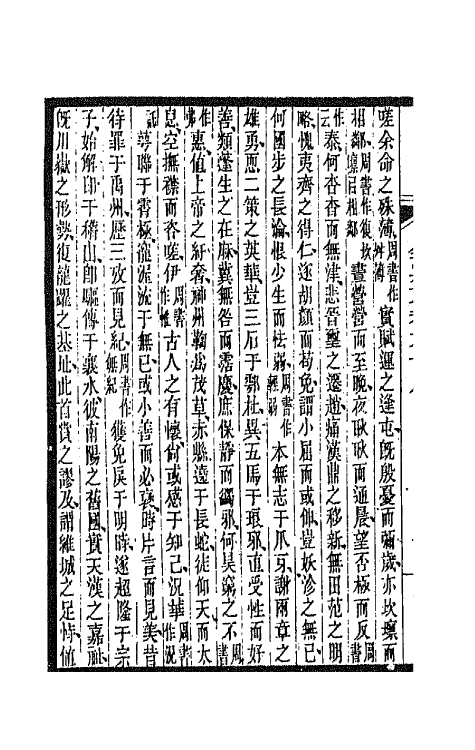 嗟余命之殊薄周書作舛薄實賦運之逢屯既殷憂而彌歲亦坎壈而
相鄰周書作復坎壈以相鄰晝營營而至晚夜耿耿而通晨望否極而反周書
作云泰何杳杳而無津悲晉璽之遷趙痛漢鼎之移新無田范之明
略愧夷齊之得仁遂胡顏而苟免謂小屈而或伸豈妖沴之無已
何國步之長淪恨少生而怯弱周書作輕弱本無志于爪牙謝兩章之
雄勇恧二策之英華豈三石于鄠杜異五馬于琅邪直受性而好
善類蓬生之在麻冀無咎而霑慶庶保靜而蠲邪何昊穹之不周書
作弗惠值上帝之紆奢神州鞠爲茂草赤縣遶于長蛇徒仰天而太
息空撫襟而咨嗟伊周書作惟古人之有懷尚或感于知己況華周書作況
託萼聯于霄極寵渥流于無已或小善而必褒時片言而見美昔
待罪于禹州歷三攷而見紀周書作無紀獲免戾于明時遂超隆于宗
子始解印于稽山卽驅傳于襄水彼南陽之舊國實天漢之嘉祉
旣川嶽之形勢復龍躍之基址此首賞之謬及謂維城之足恃值